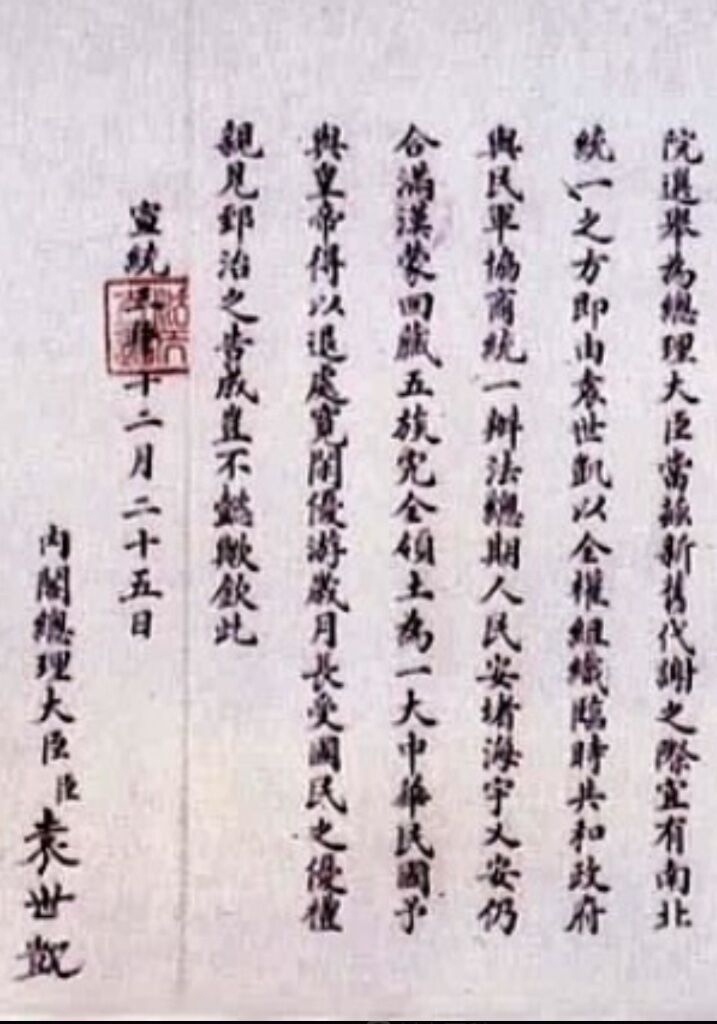 院選舉為總理大臣當茲新舊代謝之際宜有南北
統一之方即由袁世凱以全權組織臨時共和政府
與民軍協商統一辦法總期人民安堵海宇乂安仍
合滿漢蒙回藏五族完全領土為一大中華民國予
與皇帝得以退處寬閒優游歲月長受國民之優禮
親見郅治之告成豈不懿歟欽此
宣統三年十二月二十五日
內閣總理大臣臣袁世凱